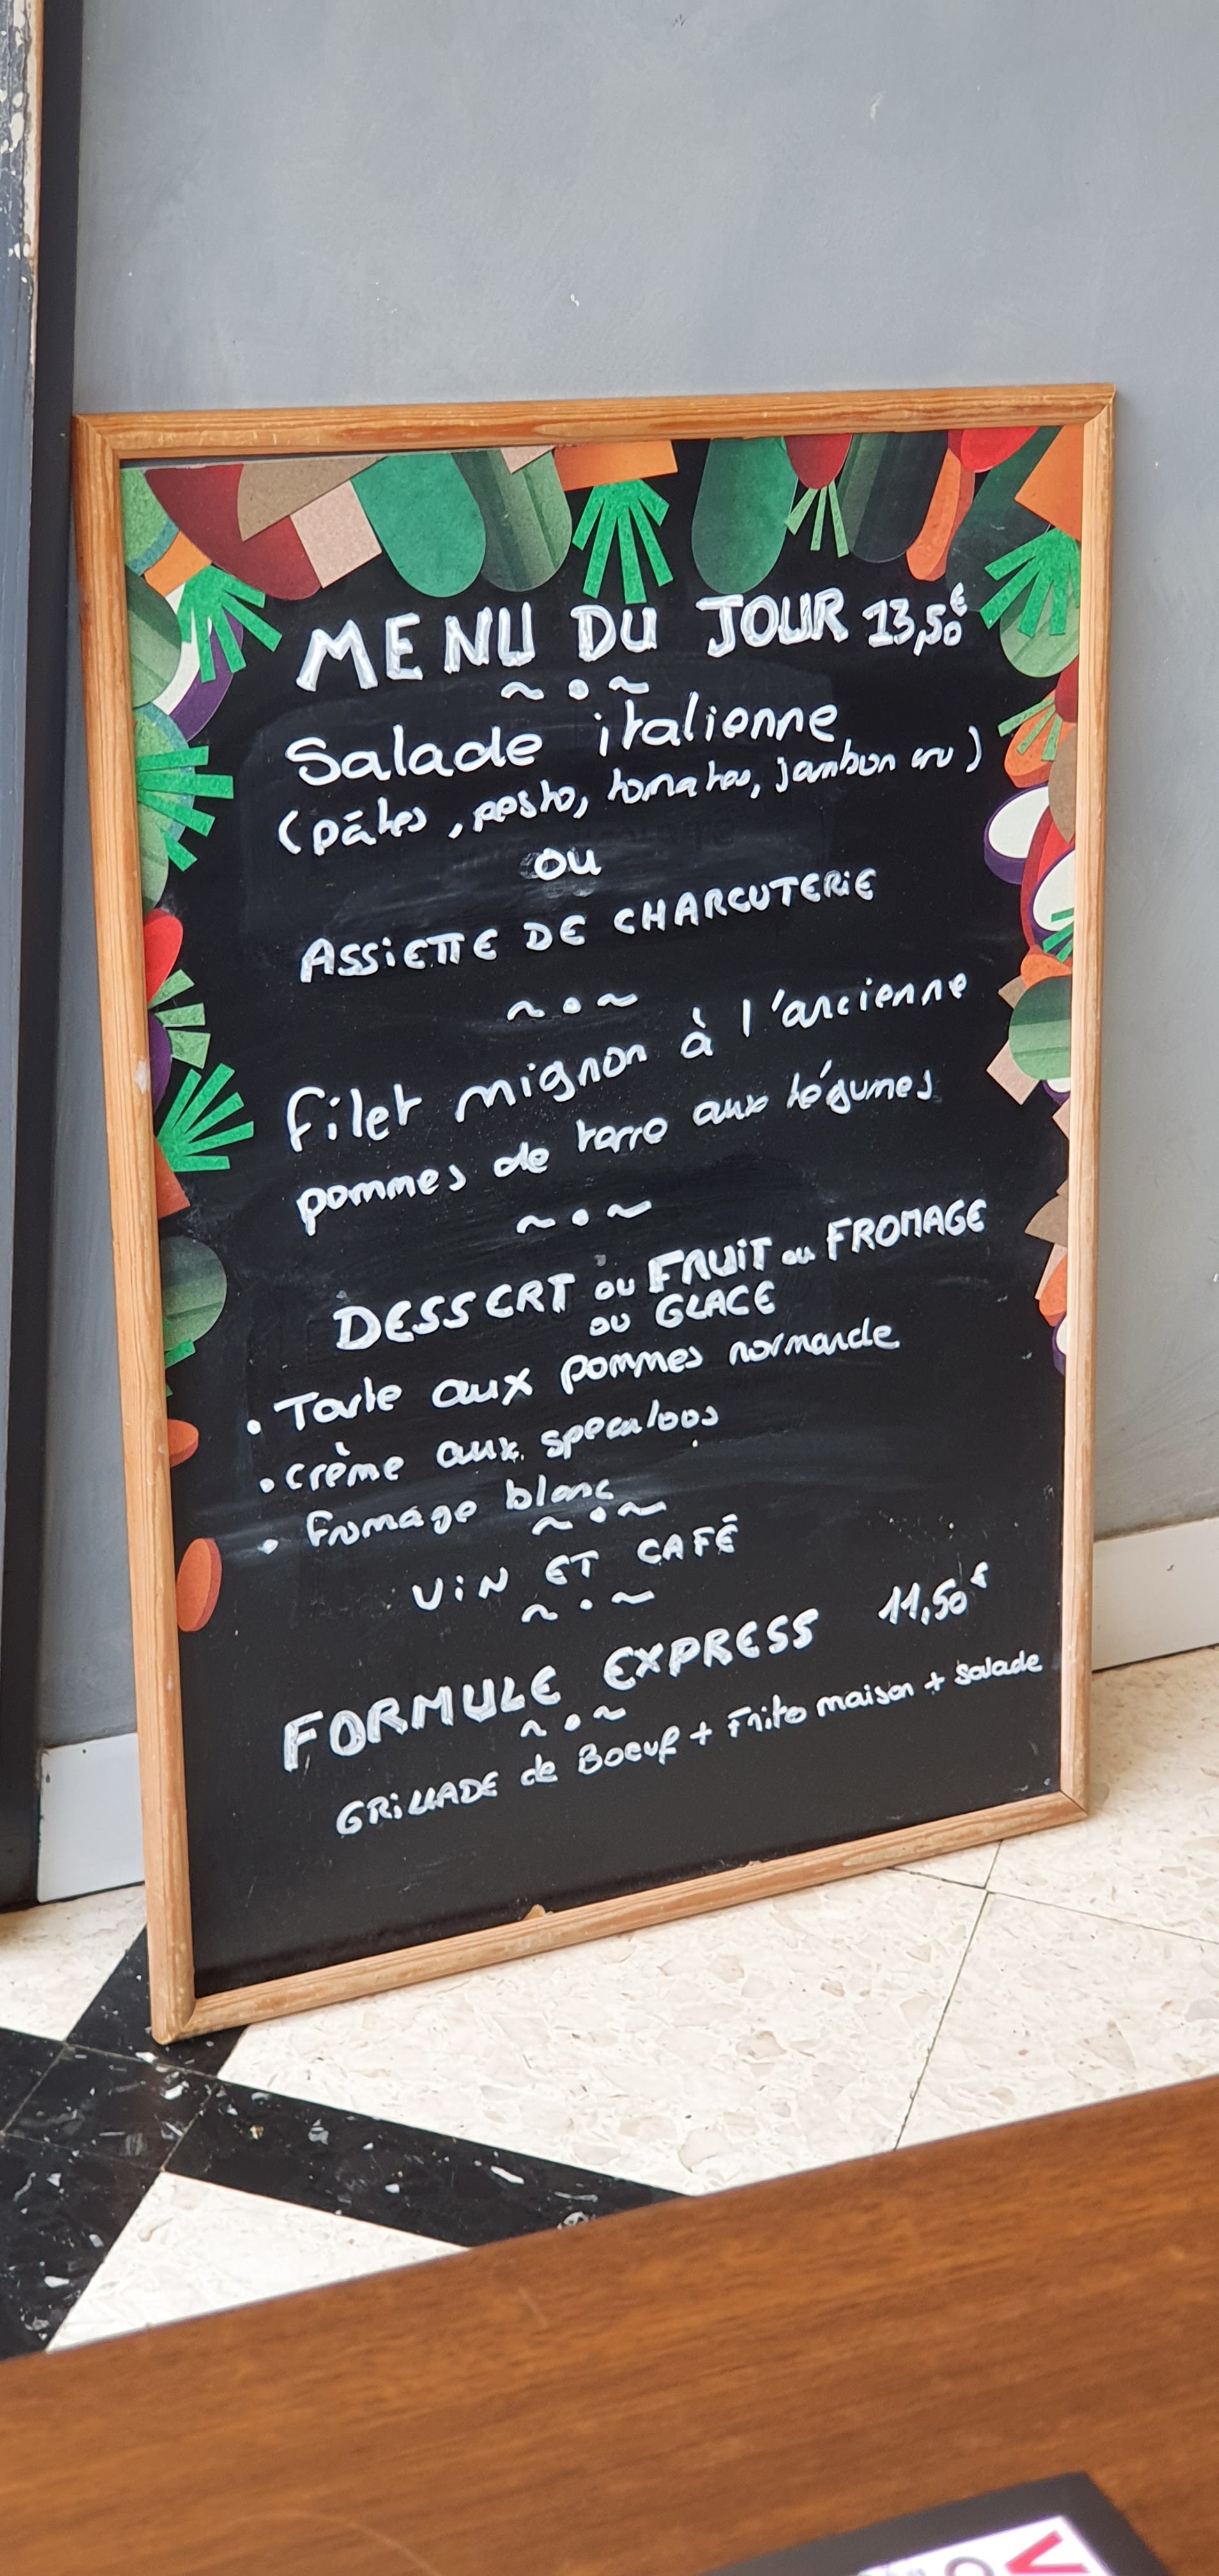 MENU DU JOUR 13,50€
Salade italienne
(pâtes, pesto, tomates, jambon cru)
ou
ASSIETTE DE CHARCUTERIE
Filet mignon à l'ancienne
pommes de terre aux légumes
DESSERT ou FRUIT ou FROMAGE
ou GLACE
• Tarte aux pommes normande
• Crème aux speculoos
• Fromage blanc
VIN ET CAFÉ
FORMULE EXPRESS 11,50€
GRILLADE de Boeuf + Frites maison + salade